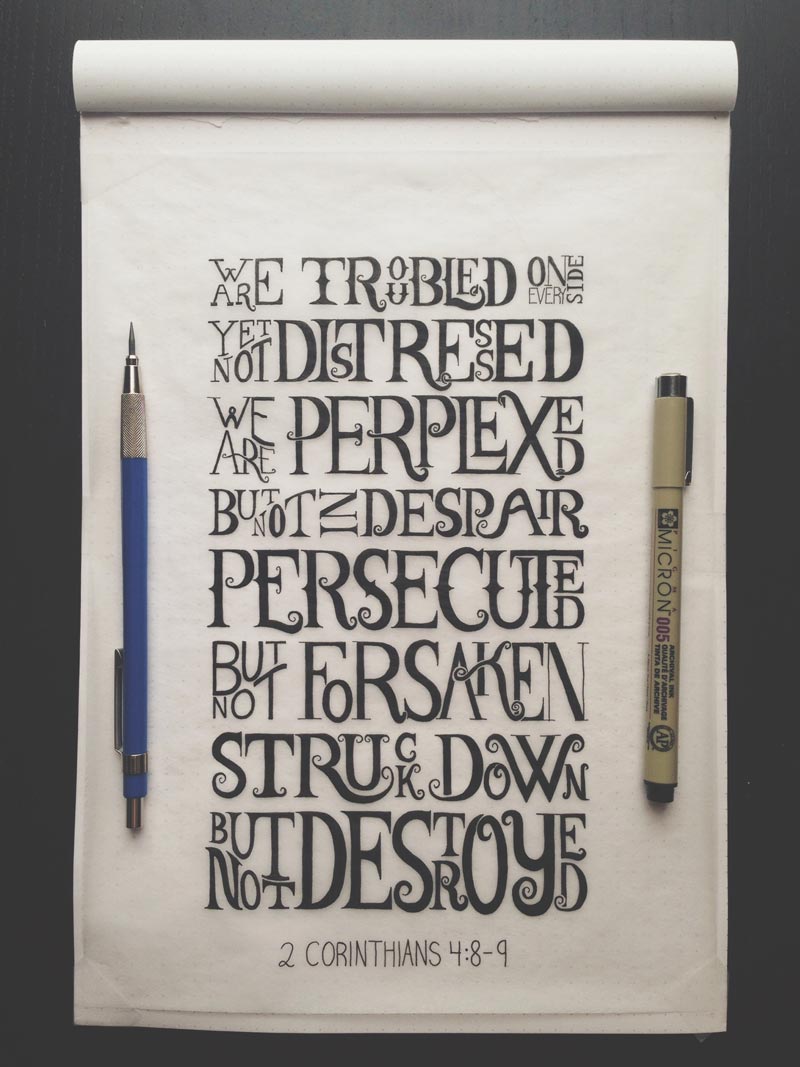 WE ARE TROUBLED ON EVERY SIDE
YET NOT DISTRESSED
WE ARE PERPLEXED
BUT NOT IN DESPAIR
PERSECUTED
BUT NOT FORSAKEN
STRUCK DOWN
BUT NOT DESTROYED
2 CORINTHIANS 4:8-9
PIGMA
MICRON 005
ARCHIVAL INK
QUALITÉ D'ARCHIVAGE
TINTA DE ARCHIVE
AP